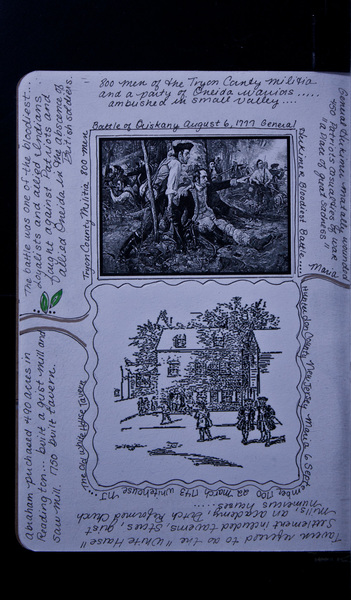 800 men of the Tryon County militia
and a party of Oneida warriors.....
ambushed in small valley....
Battle of Oriskany August 6, 1777 General
Herkimer Bloodiest Battle....
Tryon County Militia, 800 men
General Herkimer mortally wounded
450 Patriots
"a place of great sadness"
Maria
The battle was one of the bloodiest...
Loyalists and allied Indians
fought against Patriots and
allied Oneida in the absence of
British soldiers.
Hunterdon County, New Jersey
March 1746 Whitehouse NJ
The Old White House Tavern
Abraham purchased 490 acres in
Readington... built a grist mill and
saw mill. 1750 built tavern.
Tavern referred to as the "White House"
Settlement included taverns, stores, grist
mills, an academy, Dutch Reformed Church
numerous houses.